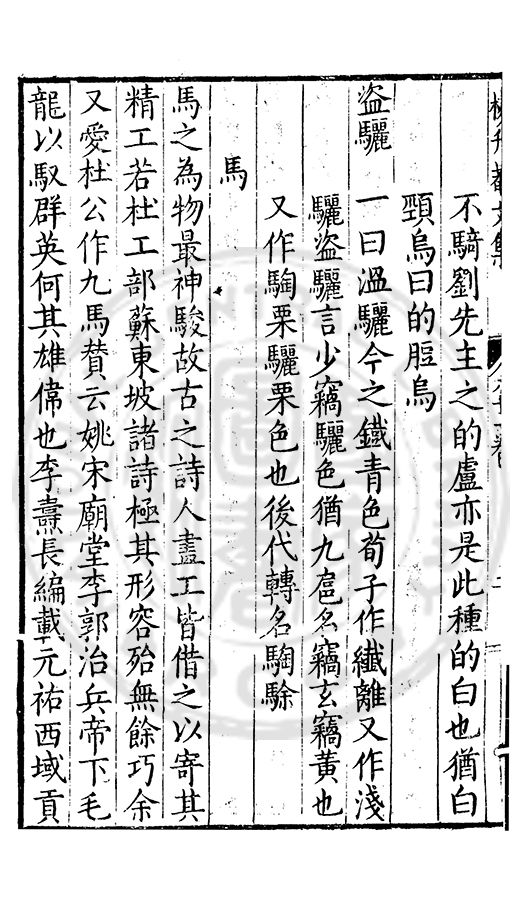 不騎劉先主之的盧亦是此種的白也猶白
頸烏曰的脰烏
盜驪
一曰溫驪今之鐵青色荀子作纖離又作淺
驪盜驪言少竊驪色猶九扈名竊玄竊黃也
又作騊栗驪栗色也後代轉名騊駼
馬
馬之為物最神駿故古之詩人畫工皆借之以寄其
精工若杜工部蘇東坡諸詩極其形容殆無餘巧余
又愛杜公作九馬贊云姚宋廟堂李郭治兵帝下毛
龍以馭群英何其雄偉也李燾長編載元祐西域貢